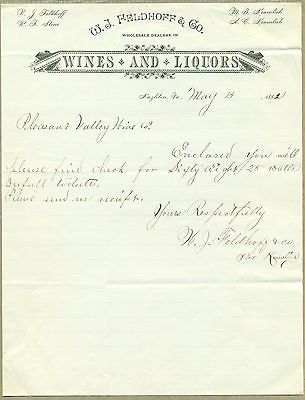 W. J. Feldhoff
W. T. Stone
M. B. Hamlish
A. C. Hamlish
W. J. FELDHOFF & CO.
WHOLESALE DEALERS IN
WINES AND LIQUORS
Houghton, Va., May 15 1882
Pleasant Valley Wine Co.
Enclosed you will
please find check for Sixty Eight 25 Dolls
In full to date.
Please send us receipt.
Yours Respectfully
W. J. Feldhoff & co.
Per